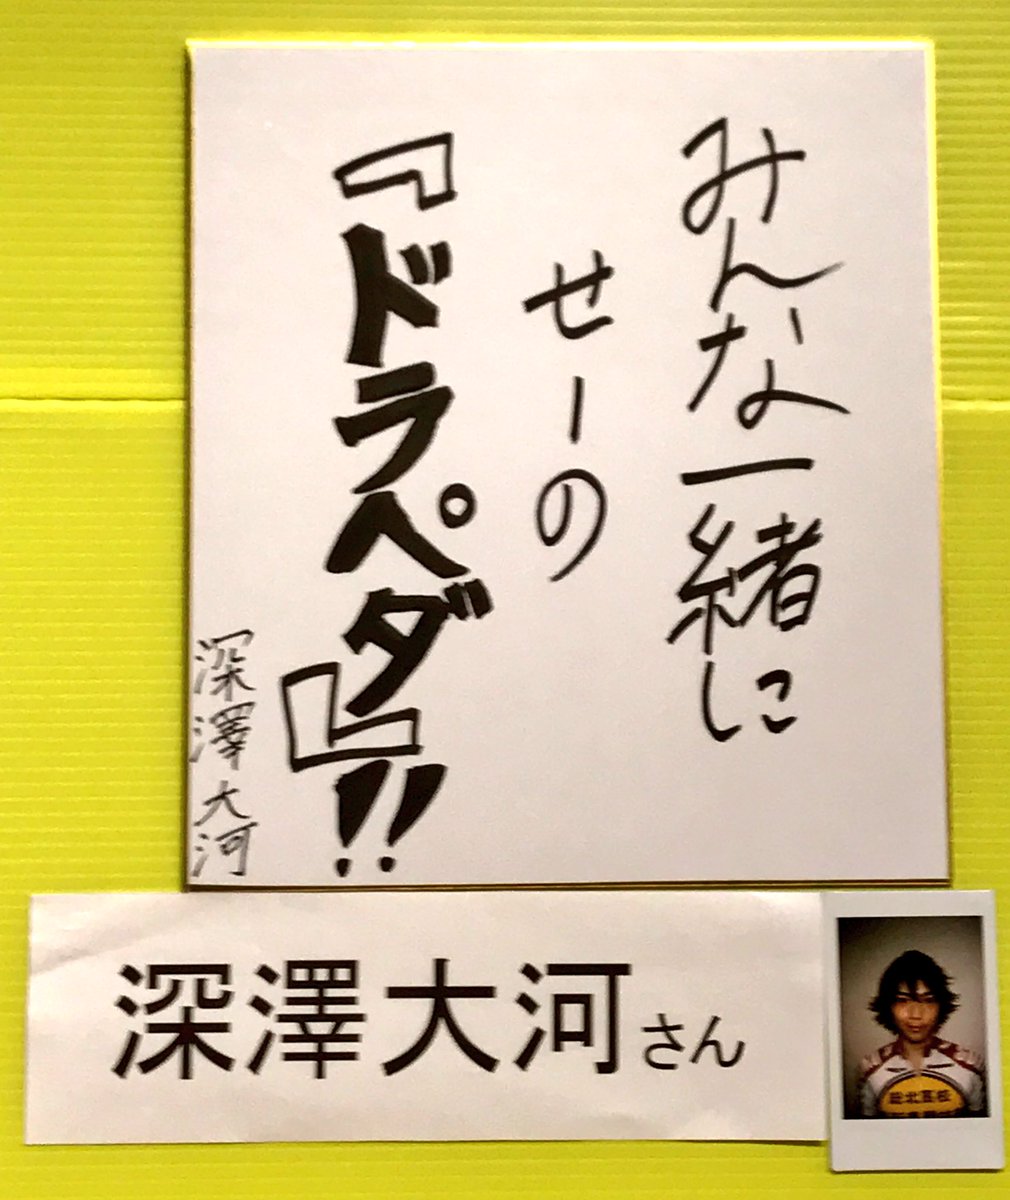 みんな一緒に
せーの
『ドラペダ』!!
深澤大河
深澤大河さん
総北高校